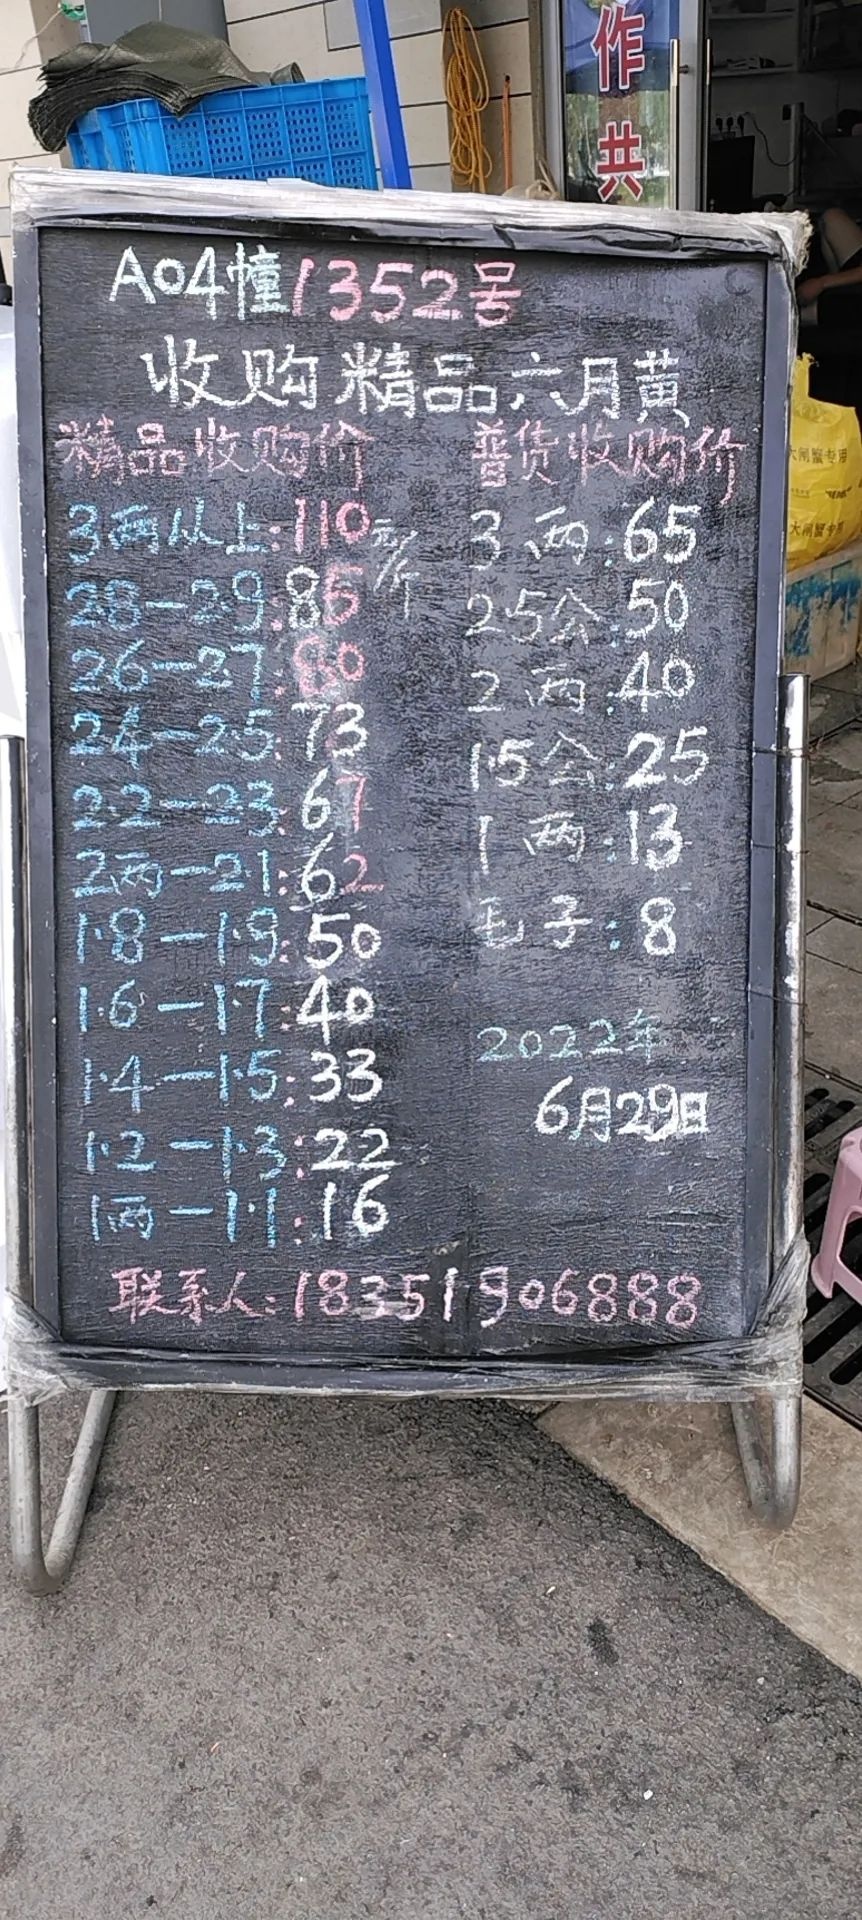 作
共
A04幢1352号
收购精品六月黄
精品收购价
3两从上:110元/斤
2.8-2.9:85
2.6-2.7:80
2.4-2.5:73
2.2-2.3:67
2两-2.1:62
1.8-1.9:50
1.6-1.7:40
1.4-1.5:33
1.2-1.3:22
1两-1.1:16
普货收购价
3两:65
2.5公:50
2两:40
1.5公:25
1两:13
毛子:8
2022年
6月29日
联系人:18351906888
大闸蟹专用
大闸蟹专用